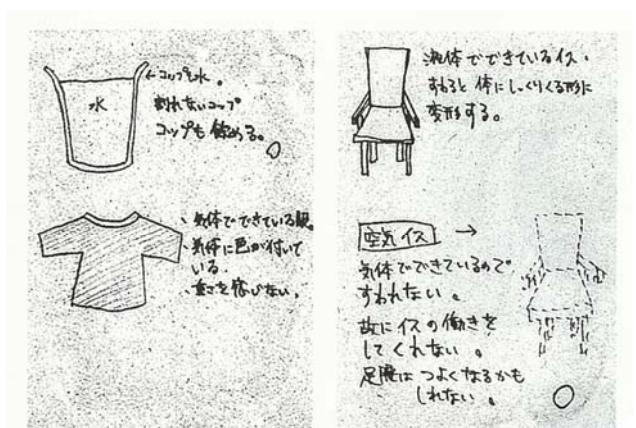 ←コップも水。
水
割れないコップ
コップも飲める。
、気体でできている服。
、気体に色が付いて
いる。
、重さを感じない。
液体でできているイス。
すわると体にしっくりくる形に
変形する。
空気イス →
気体でできているので
すわれない。
故にイスの働きを
してくれない。
足腰はつよくなるかも
しれない。